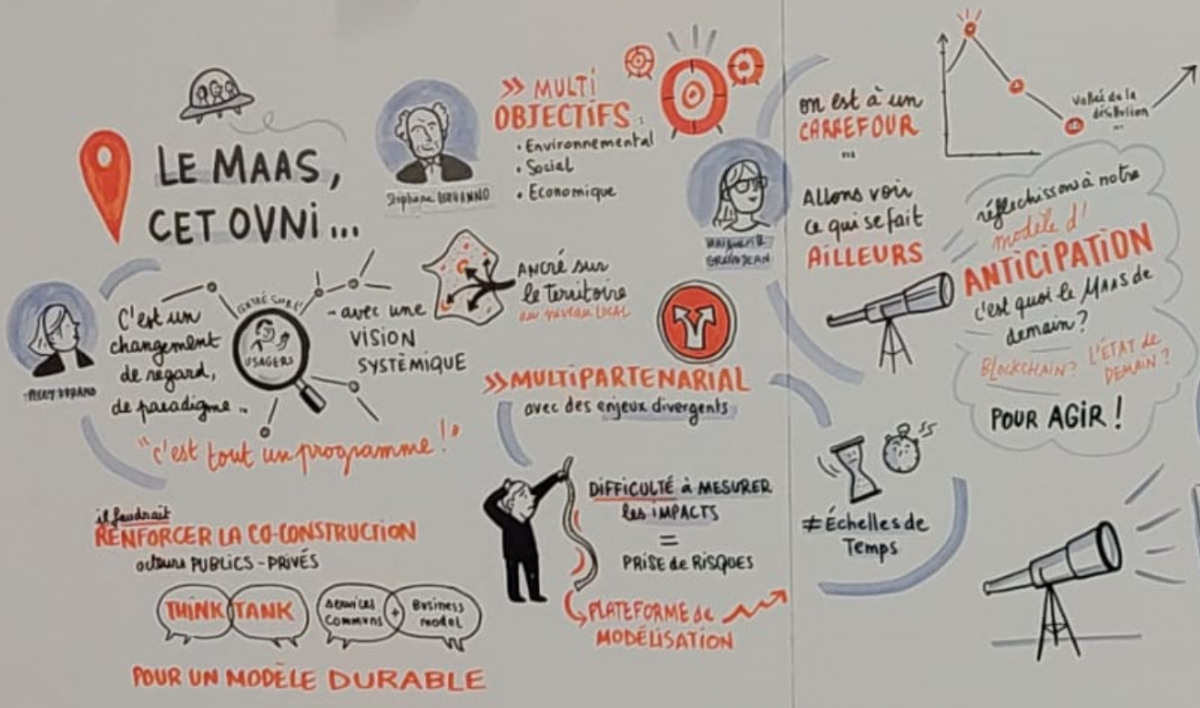 LE MAAS,
CET OVNI...
C'est un
changement
de regard,
de paradigme...
CENTRÉ SUR L'
USAGERS
- avec une
VISION
SYSTÈMIQUE
"c'est tout un programme !"
il faudrait
RENFORCER LA CO-CONSTRUCTION
acteurs PUBLICS - PRIVÉS
THINK TANK
Services
Communs
+
Business
model
POUR UN MODÈLE DURABLE
Stéphane
>> MULTI
OBJECTIFS :
• Environnemental
• Social
• Economique
ANCRÉ sur
le Territoire
au niveau LOCAL
>> MULTIPARTENARIAL
avec des enjeux divergents
DIFFICULTÉ à MESURER
les IMPACTS
=
PRISE de RISQUES
PLATEFORME de
MODÉLISATION
on est à un
CARREFOUR
...
Allons voir
ce qui se fait
AILLEURS
≠ Échelles de
Temps
de la
...
réflechissons à notre
modèle d'
ANTICIPATION
c'est quoi le MAAS de
demain ?
BLOCKCHAIN ? L'ÉTAT de
DEMAIN ?
POUR AGIR !